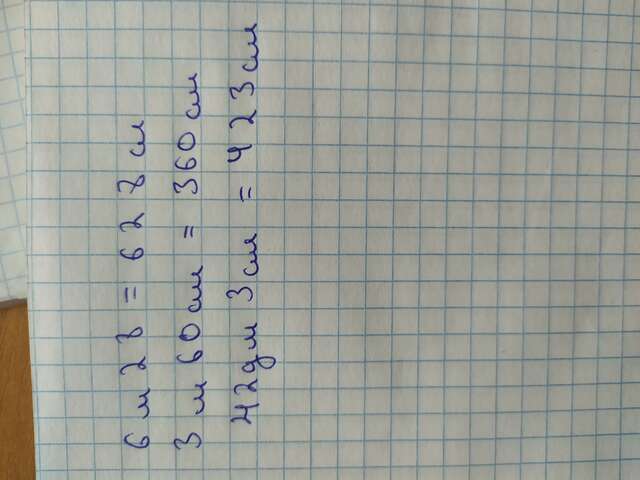 6 м 28 = 628 см
3 м 60 см = 360 см
42 дм 3 см = 423 см